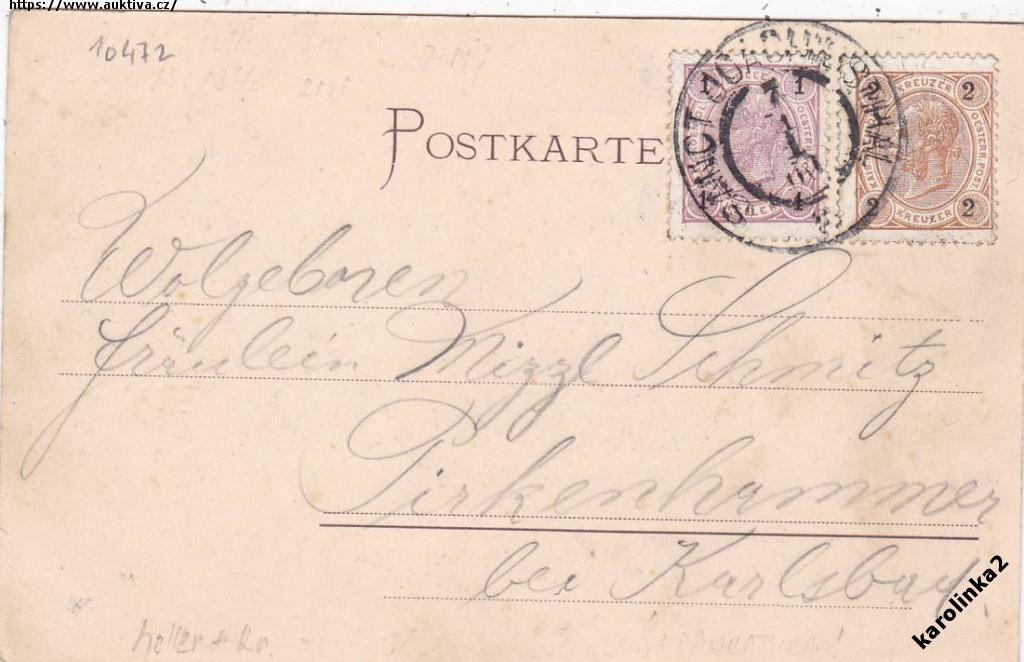 https://www.auktiva.cz/
10472
POSTKARTE
SANCT JOACHIMSTHAL
1 1
KREUZER
1 1
2 KREUZER 2
OESTERR. POST
2 KREUZER 2
Wolgeboren
Fräulein Mizzl Schmitz
Pirkenhammer
bei Karlsbad
karolinka2